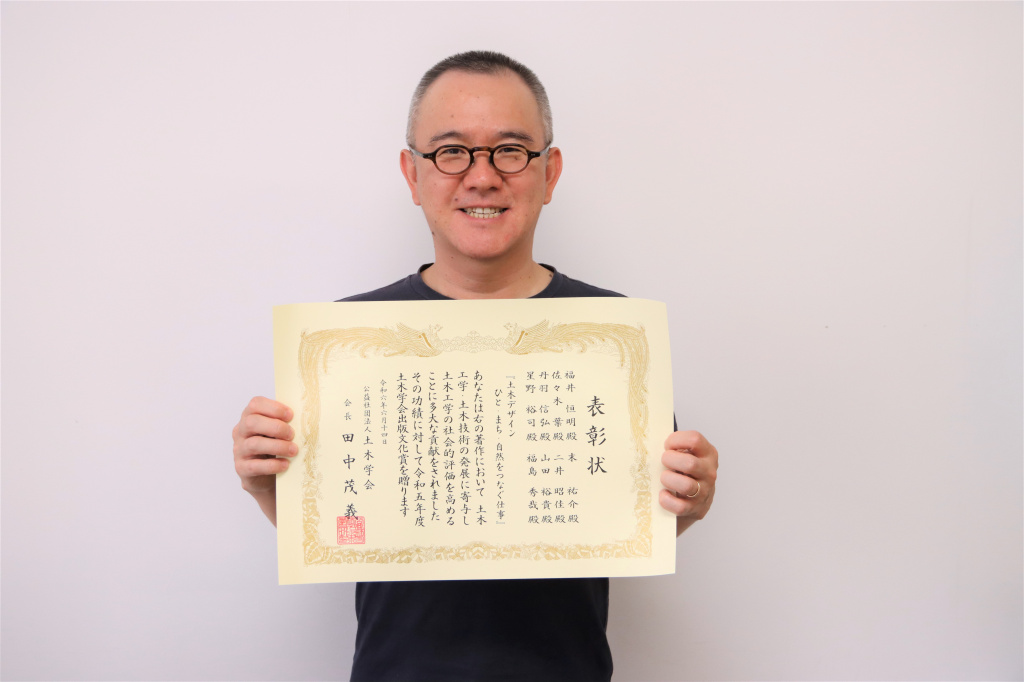 表彰状
福井 恒明殿 末 祐介殿
佐々木 葉殿 二井 昭佳殿
丹羽 信弘殿 山田 裕貴殿
星野 裕司殿 福島 秀哉殿
『土木デザイン
ひと・まち・自然をつなぐ仕事』
あなたは右の著作において 土木
工学・土木技術の発展に寄与し
土木工学の社会的評価を高める
ことに多大な貢献をされました
その功績に対して令和五年度
土木学会出版文化賞を贈ります
令和六年六月十四日
公益社団法人 土木学会
会長 田中茂義